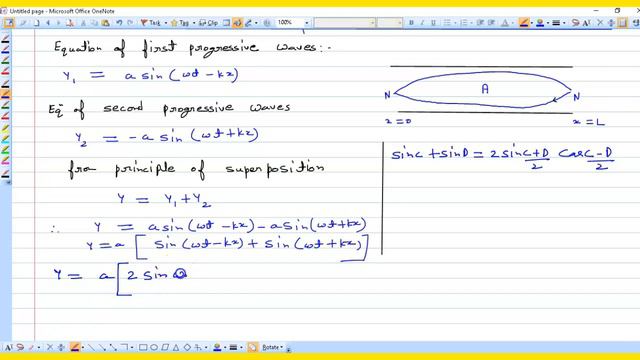 Untitled page - Microsoft Office OneNote
100%
Equation of first progressive waves:-
Y₁ = a sin (wt - kx)
Eqⁿ of second progressive waves
Y₂ = -a sin (wt + kx)
from principle of superposition
Y = Y₁ + Y₂
∴ Y = a sin (wt - kx) - a sin (wt + kx)
Y = a [ sin (wt - kx) + sin (wt + kx) ]
Y = a [ 2 sin
N A N
x = 0 x = L
sinC + sinD = 2 sin C+D/2 Cos C-D/2
Rotate